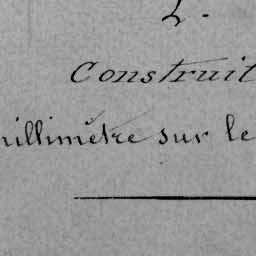 2.
Construit
millimètre sur le